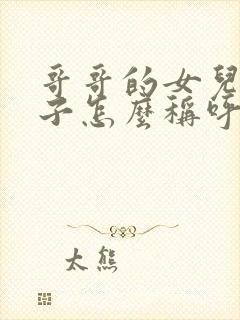 哥哥的女兒
子怎麼稱呼
太熊